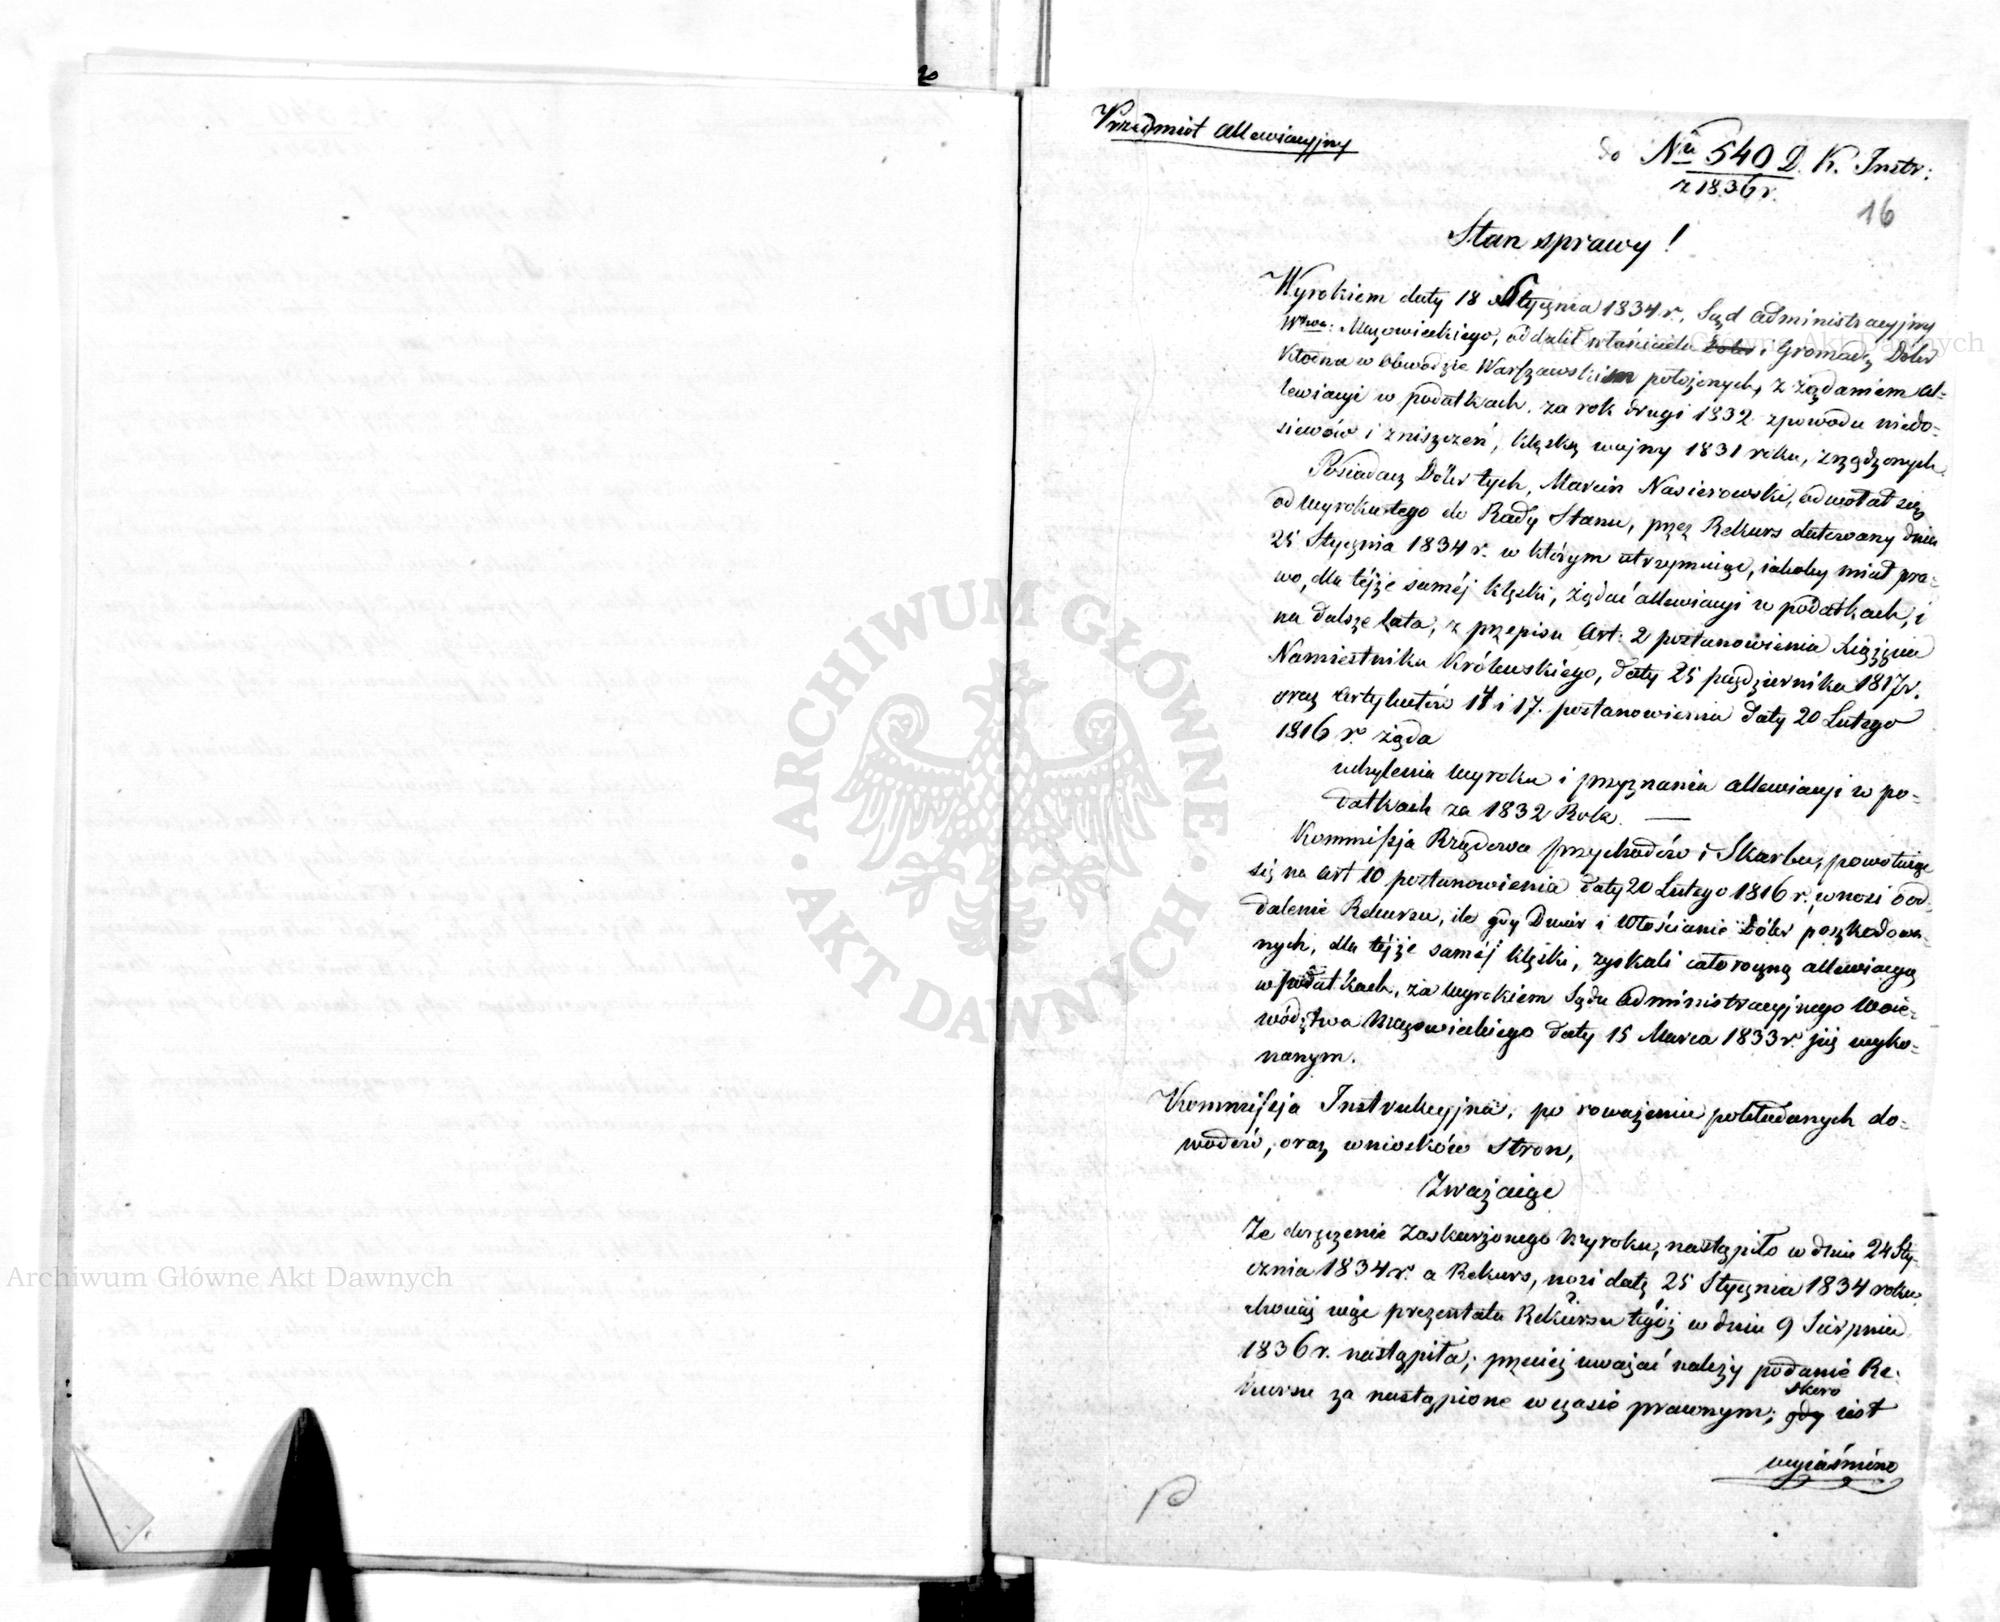 Przedmiot allewiacyjny
do Nru 540 D. K. Instr:
z 1836 r.
16
Stan sprawy!
Wyrokiem daty 18 Stycznia 1834 r. Sąd administracyjny
Wtwa: Mazowieckiego, oddalił właściciela i Gromadę Dóbr
Kłodna w Obwodzie Warszawskim położonych, z żądaniem al-
lewiacyi w podatkach za rok drugi 1832 zpowodu niedo-
siewów i zniszczeń, klęską wojny 1831 roku, zrządzonych.
Posiadacz Dóbr tych, Marcin Nasierowski, odwołał się
od wyroku tego do Rady Stanu, przez Rekurs datowany dnia
25 Stycznia 1834 r. w którym utrzymuiąc, iakoby miał pra-
wo, dla téjże saméj klęski, żądać allewiacyi w podatkach, i
na dalsze lata, z przepisu Art: 2 postanowienia Xiążęcia
Namiestnika Królewskiego, daty 25 października 1817 r.
oraz Artykułów 14 i 17. postanowienia daty 20 Lutego
1816 r. żąda
uchylenia wyroku i przyznania allewiacyi w po-
datkach za 1832 Rok. —
Kommissja Rządowa przychodów i Skarbu, powołuiąc
się na Art 10 postanowienia daty 20 Lutego 1816 r. wnosi o od-
dalenie Rekursu, ile gdy Dwór i Włościanie Dóbr poszkodowa-
nych, dla téjże saméj klęski, zyskali całoroczną allewiacyą
w podatkach, za wyrokiem Sądu Administracyjnego Woie-
wództwa Mazowieckiego daty 15 Marca 1833 r. już wyko-
nanym.
Kommissja Instrukcyjna, po rozważeniu pokładanych do-
wodów, oraz wniosków Stron,
Zważaiąc
Że doręczenie zaskarżonego Wyroku, nastąpiło w dniu 24 Sty-
cznia 1834 r. a Rekurs, nosi datę 25 Stycznia 1834 roku,
chociaż więc prezentata Rekursu tegóż w dniu 9 Sierpnia
1836 r. nastąpiła; przecież uważać należy podanie Re-
kursu za nastąpione w czasie prawnym; gdy skoro iest
wyiaśnione
Archiwum Główne Akt Dawnych
Archiwum Główne Akt Dawnych
ARCHIWUM GŁÓWNE
AKT DAWNYCH